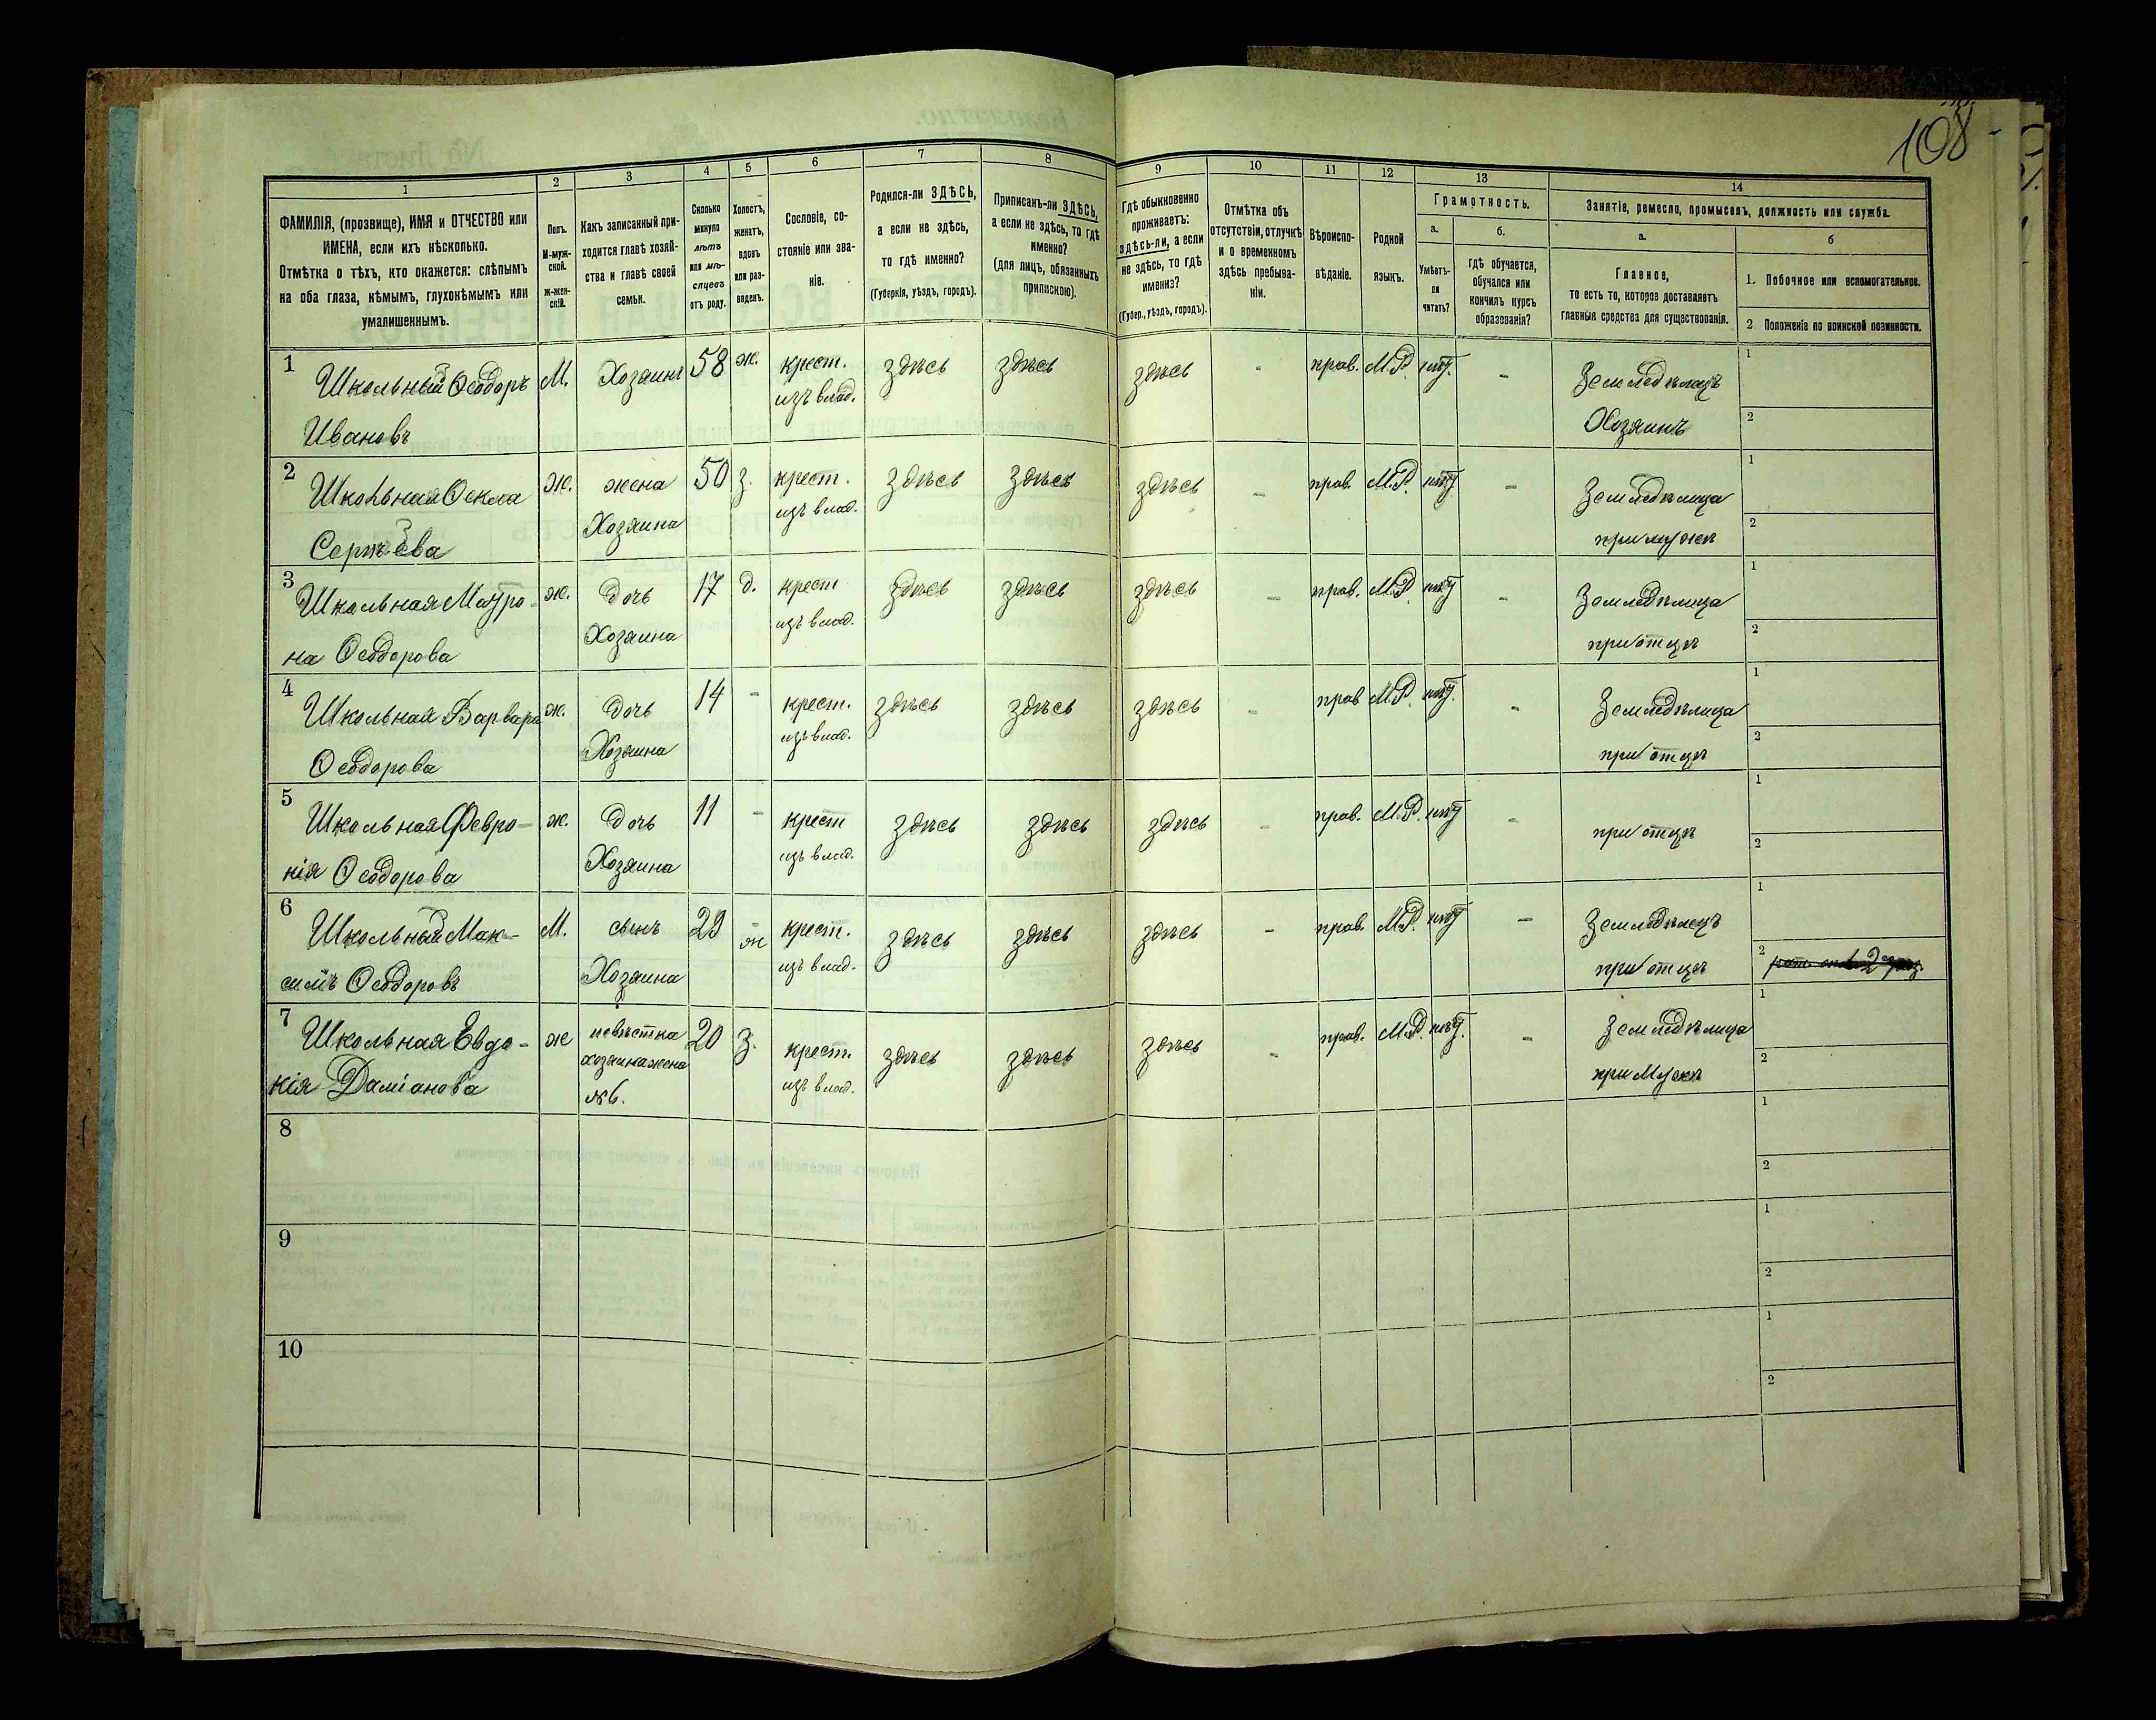 108
1 2 3 4 5 6 7 8 9 10 11 12 13 14
ФАМИЛІЯ, (прозвище), ИМЯ и ОТЧЕСТВО или
ИМЕНА, если ихъ нѣсколько.
Отмѣтка о тѣхъ, кто окажется: слѣпымъ
на оба глаза, нѣмымъ, глухонѣмымъ или
умалишеннымъ.
Полъ.
М-муж-
ской.
ж-жен-
скій.
Какъ записанный при-
ходится главѣ хозяй-
ства и главѣ своей
семьи.
Сколько
минуло
лѣтъ
или мѣ-
сяцевъ
отъ роду.
Холостъ,
женатъ,
вдовъ
или раз-
веденъ.
Сословіе, со-
стояніе или зва-
ніе.
Родился-ли ЗДѢСЬ,
а если не здѣсь,
то гдѣ именно?
(Губернія, уѣздъ, городъ).
Приписанъ-ли ЗДѢСЬ,
а если не здѣсь, то гдѣ
именно?
(для лицъ, обязанныхъ
припискою).
Гдѣ обыкновенно
проживаетъ:
здѣсь-ли, а если
не здѣсь, то гдѣ
именно?
(Губер., уѣздъ, городъ).
Отмѣтка объ
отсутствіи, отлучкѣ
и о временномъ
здѣсь пребыва-
ніи.
Вѣроиспо-
вѣданіе.
Родной
языкъ.
Грамотность.
а.
Умѣетъ-
ли
читать?
б.
Гдѣ обучается,
обучался или
кончилъ курсъ
образованія?
Занятіе, ремесло, промыселъ, должность или служба.
а.
Главное,
то есть то, которое доставляетъ
главныя средства для существованія.
б
1. Побочное или вспомогательное.
2 Положеніе по воинской повинности.
1 Школьный Ѳеодоръ М. Хозяинъ 58 ж. крест. здѣсь здѣсь здѣсь - прав. М.Р. нѣт. - Земледѣлецъ 1
Ивановъ изъ влад. Хозяинъ 2
2 Школьная Ѳекла Ж. жена 50 з. крест. здѣсь здѣсь здѣсь - прав. М.Р. нѣт - Земледѣлица 1
Сергѣева Хозяина изъ влад. при мужѣ 2
3 Школьная Матро- ж. дочь 17 д. крест здѣсь здѣсь здѣсь - прав. М.Р. нѣт - Земледѣлица 1
на Ѳеодорова Хозяина изъ влад. при отцѣ 2
4 Школьная Варвара ж. дочь 14 - крест. здѣсь здѣсь здѣсь - прав М.Р. нѣт. - Земледѣлица 1
Ѳеодорова Хозяина изъ влад. при отцѣ 2
5 Школьная Февро- ж. дочь 11 - крест здѣсь здѣсь здѣсь - прав. М.Р. нѣт - при отцѣ 1
нія Ѳеодорова Хозяина изъ влад. 2
6 Школьный Мак- М. сынъ 29 ж крест. здѣсь здѣсь здѣсь - прав. М.Р. нѣт - Земледѣлецъ 1
симъ Ѳеодоровъ Хозяина изъ влад. при отцѣ 2
7 Школьная Евдо- ж невѣстка 20 з. крест. здѣсь здѣсь здѣсь - прав. М.Р. нѣт. - Земледѣлица 1
кія Даміанова хозяина жена изъ влад. при мужѣ 2
№6.
8 1
2
9 1
2
10 1
2